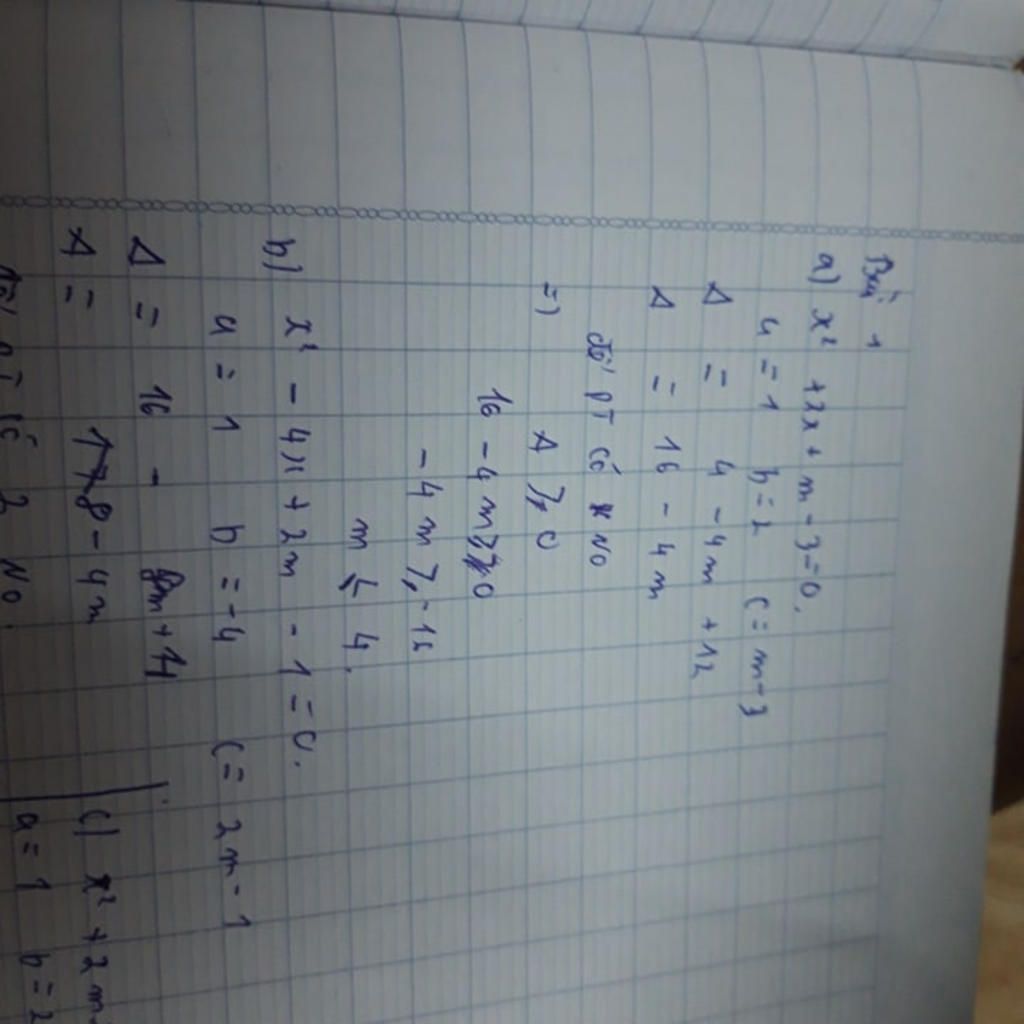 Bài 1
a) x² + 2x + m - 3 = 0.
a = 1 b = 2 c = m - 3
Δ = 4 - 4m + 12
Δ = 16 - 4m
Để PT có NO
=) Δ ≥ 0
16 - 4m ≥ 0
- 4m ≥ - 16
m ≤ 4.
b) x² - 4x + 2m - 1 = 0.
a = 1 b = -4 c = 2m - 1
Δ = 16 - 8m + 4
Δ = 8 - 4m
Để PT có 2 NO.
c) x² + 2m
a = 1 b = 2